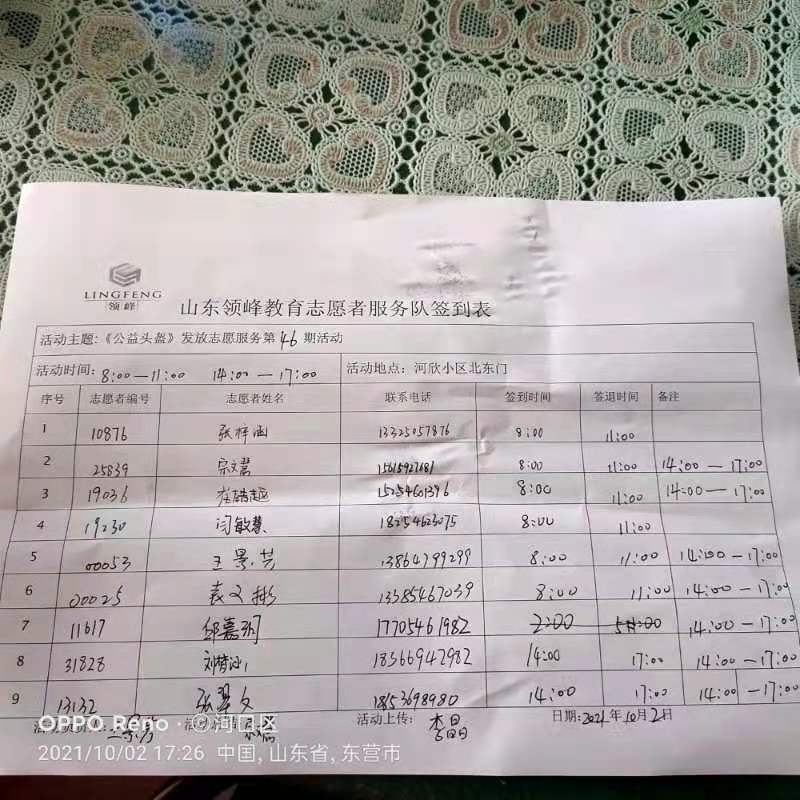 LINGFENG
领峰
山东领峰教育志愿者服务队签到表
活动主题:《公益头盔》发放志愿服务第 46 期活动
活动时间: 8:00—11:00 14:00—17:00 活动地点: 河欣小区北东门
序号 志愿者编号 志愿者姓名 联系电话 签到时间 签退时间 备注
1 10876 张梓涵 13325057876 8:00 11:00
2 25839 宗文慧 8:00 11:00 14:00—17:00
3 19036 15254601396 8:00 11:00 14:00—17:00
4 19230 闫敏慧 18254623075 8:00 11:00
5 00053 王景芸 13864799299 8:00 11:00 14:00—17:00
6 00025 袁文彬 13385467039 8:00 11:00 14:00—17:00
7 11617 17705461982 2:00 14:00—17:00
8 31828 18366942982 14:00 17:00 14:00—17:00
9 13132 张 文 1853698980 14:00 17:00 14:00—17:00
活动上传: 李晶 日期: 2021年10月2日
OPPO Reno · ©河口区
2021/10/02 17:26 中国, 山东省, 东营市